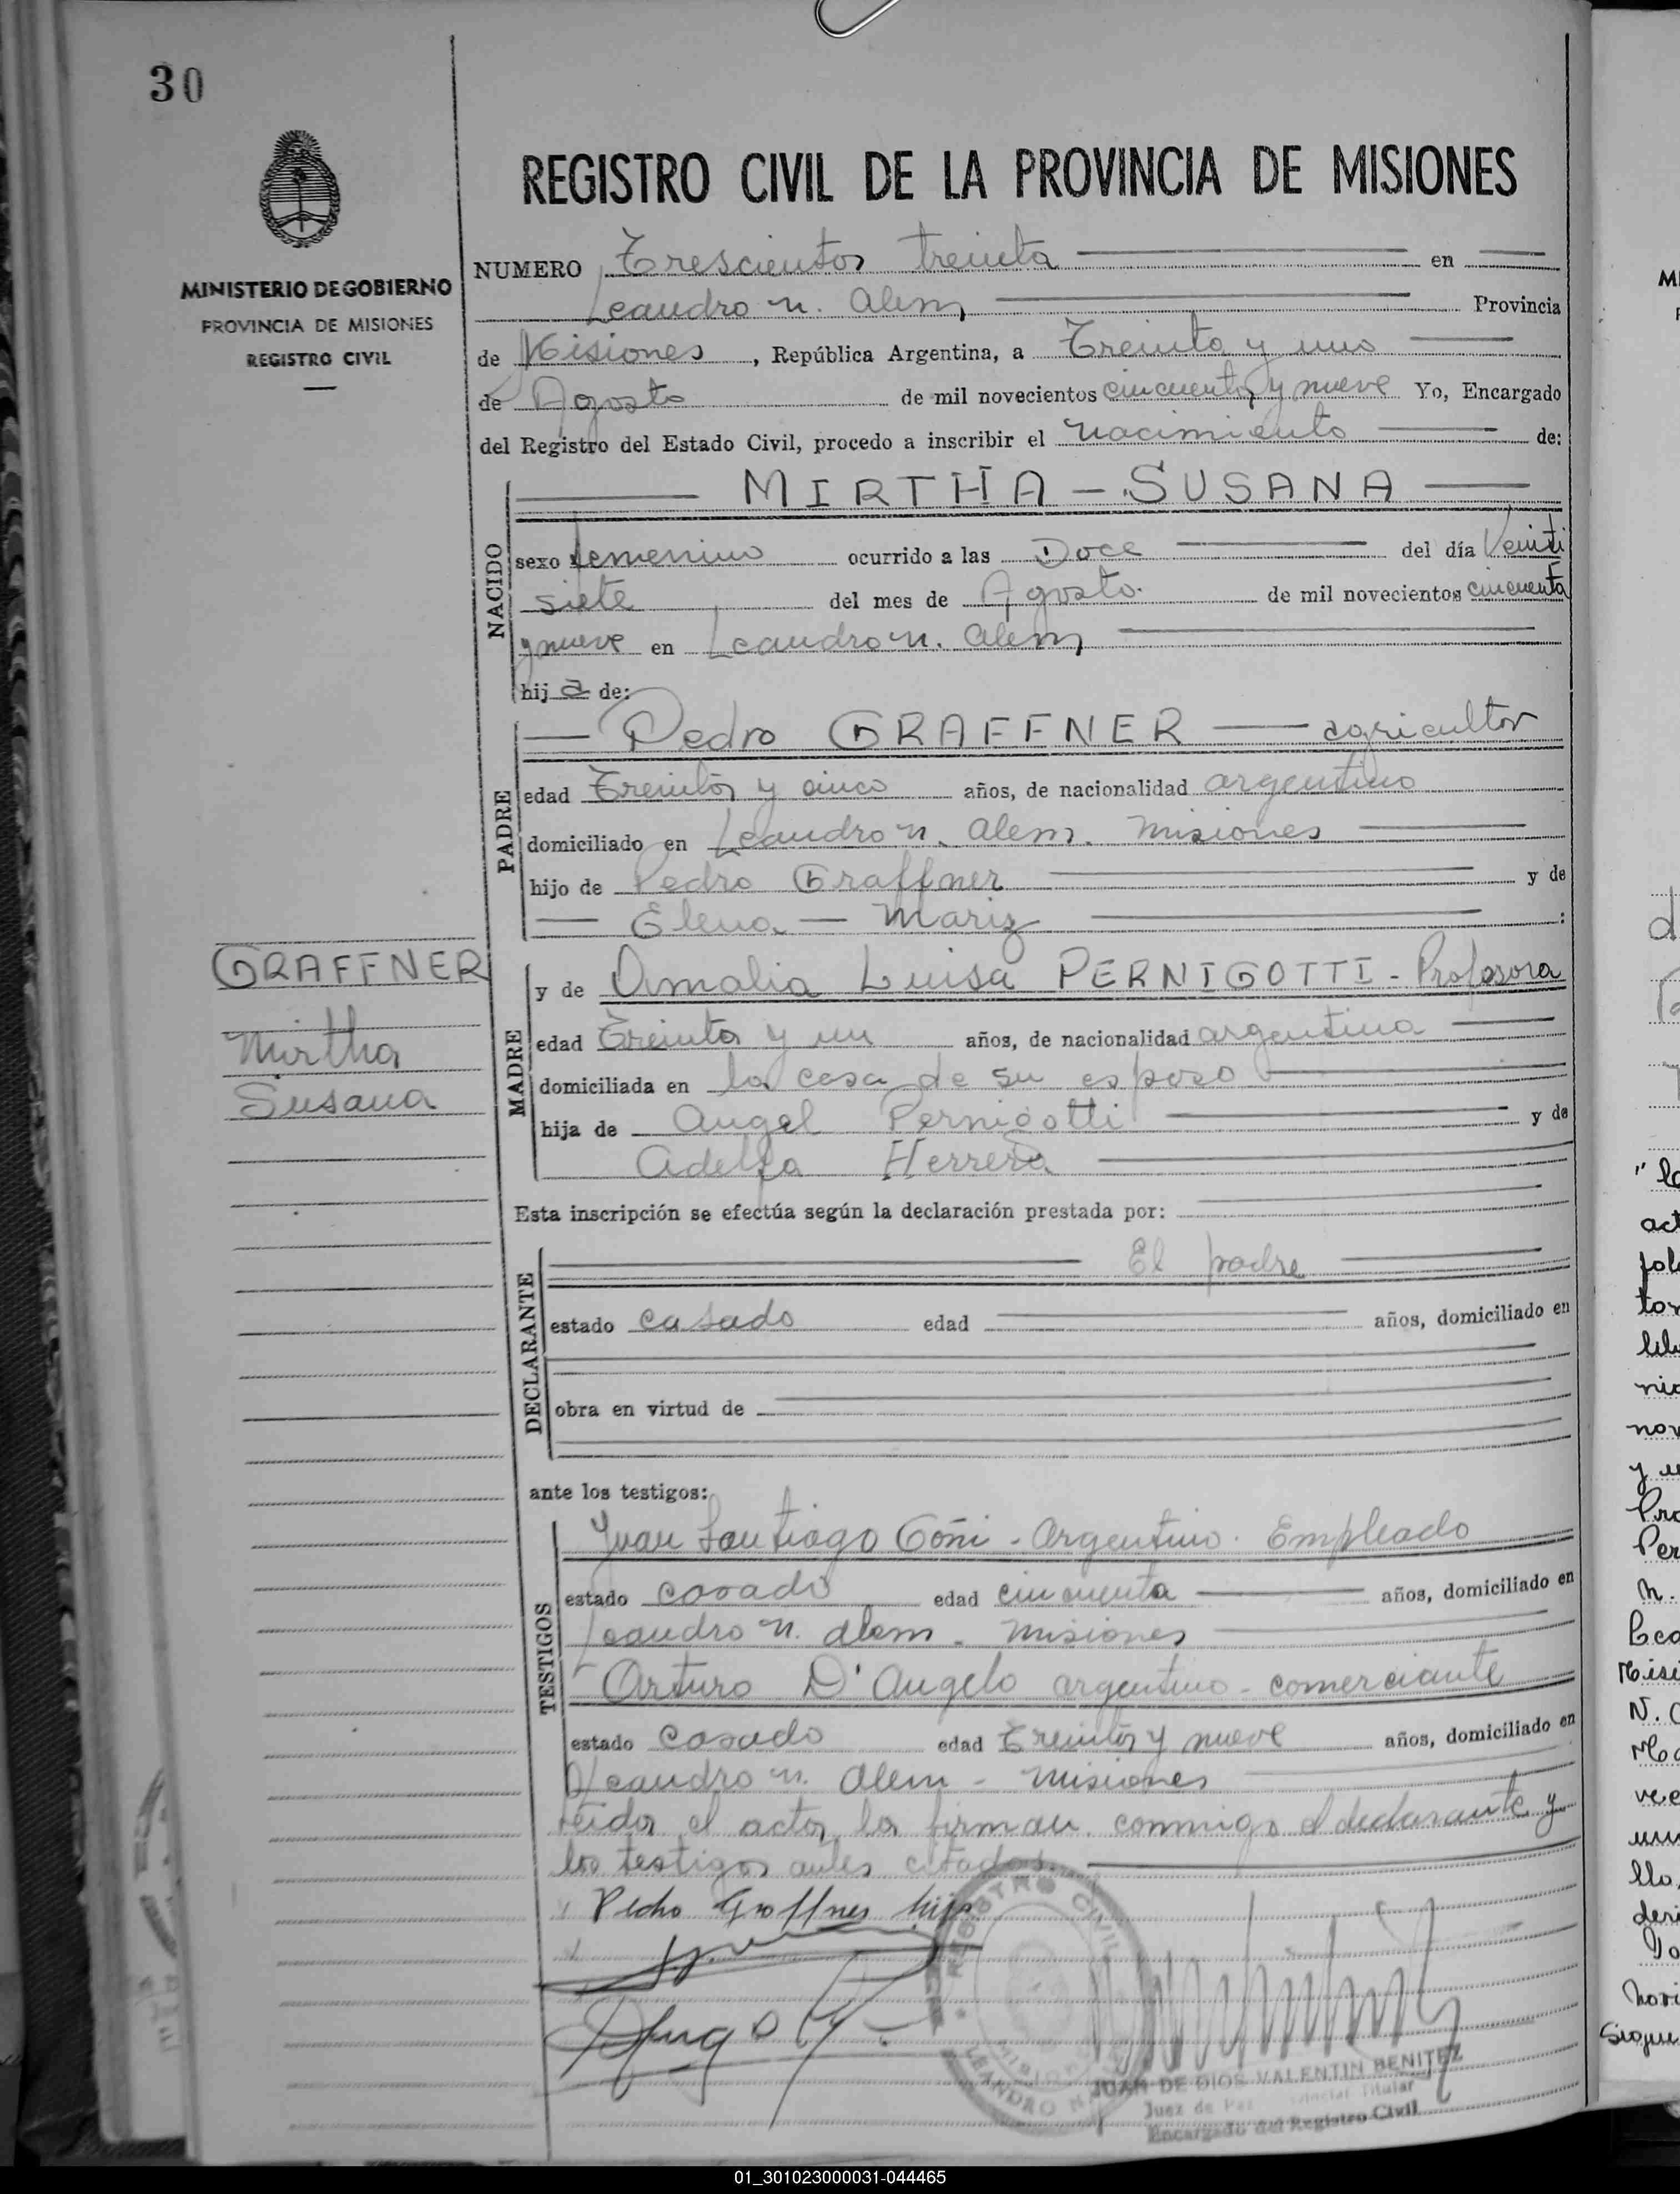 30
MINISTERIO DE GOBIERNO
PROVINCIA DE MISIONES
REGISTRO CIVIL
REGISTRO CIVIL DE LA PROVINCIA DE MISIONES
NUMERO Trescientos treinta en
Leandro N. Alem Provincia
de Misiones, República Argentina, a Treinta y uno
de Agosto de mil novecientos cincuenta y nueve Yo, Encargado
del Registro del Estado Civil, procedo a inscribir el nacimiento de:
NACIDO
MIRTHA - SUSANA
sexo femenino ocurrido a las Doce del día Veinti
siete del mes de Agosto de mil novecientos cincuenta
y nueve en Leandro N. Alem
hij a de:
PADRE
Pedro GRAFFNER agricultor
edad Treinta y cinco años, de nacionalidad argentino
domiciliado en Leandro N. Alem. Misiones
hijo de Pedro Graffner y de
Elena Mariz :
GRAFFNER
Mirtha
Susana
MADRE
y de Amalia Luisa PERNIGOTTI - Profesora
edad Treinta y un años, de nacionalidad argentina
domiciliada en la casa de su esposo
hija de Angel Pernigotti y de
Adelfa Herrera
Esta inscripción se efectúa según la declaración prestada por:
DECLARANTE
El padre
estado casado edad años, domiciliado en
obra en virtud de
ante los testigos:
TESTIGOS
Juan Santiago Goñi - Argentino. Empleado
estado casado edad cincuenta años, domiciliado en
Leandro N. Alem. Misiones
Arturo D'Angelo argentino - comerciante
estado casado edad Treinta y nueve años, domiciliado en
Leandro N. Alem - Misiones
leída el acta, la firman conmigo el declarante y
los testigos antes citados.
Pedro Graffner hijo
REGISTRO CIVIL
MISIONES
LEANDRO N.
JUAN DE DIOS VALENTIN BENITEZ
Juez de Paz Titular
Encargado del Registro Civil
01_301023000031-044465